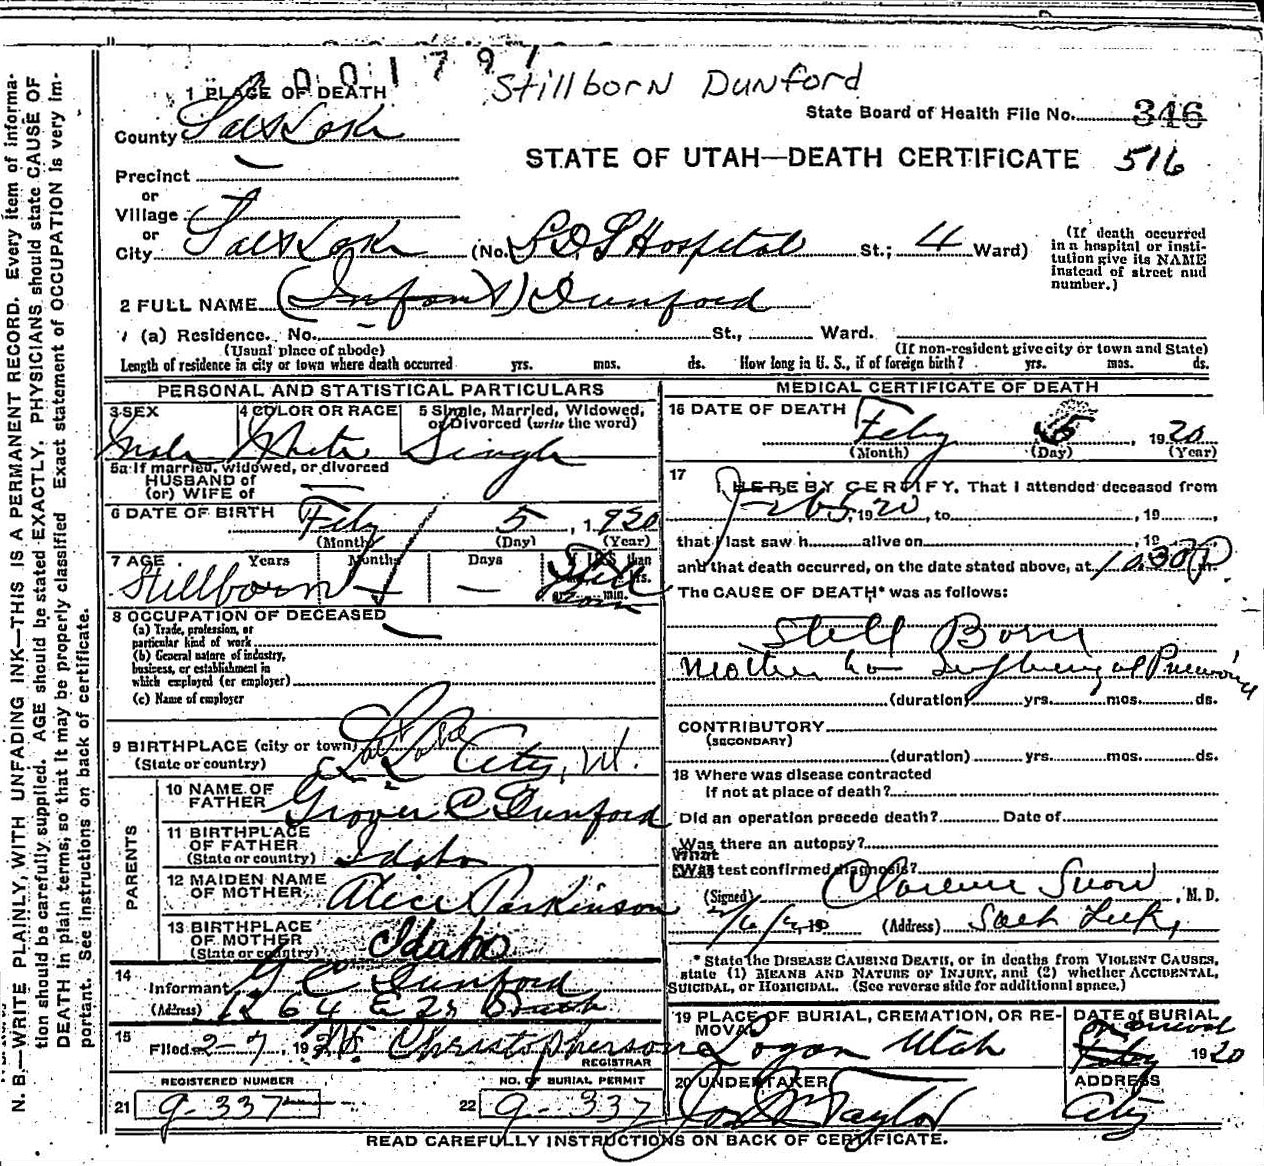 2001791
Stillborn Dunford
1 PLACE OF DEATH
State Board of Health File No. 346
County Salt Lake
STATE OF UTAH—DEATH CERTIFICATE 516
Precinct
or
Village
or
City Salt Lake (No. L.D.S Hospital St.; 4 Ward)
(If death occurred in a hospital or insti-
tution give its NAME
instead of street and
number.)
2 FULL NAME (Infant) Dunford
(a) Residence. No. St., Ward.
(Usual place of abode) (If non-resident give city or town and State)
Length of residence in city or town where death occurred yrs. mos. ds. How long in U. S., if of foreign birth? yrs. mos. ds.
PERSONAL AND STATISTICAL PARTICULARS
3 SEX 4 COLOR OR RACE 5 Single, Married, Widowed,
or Divorced (write the word)
Male White Single
5a If married, widowed, or divorced
HUSBAND of
(or) WIFE of
6 DATE OF BIRTH Feby 5, 1920
(Month) (Day) (Year)
7 AGE Years Months Days If LESS than
Stillborn — Still born
hrs.
or min.
8 OCCUPATION OF DECEASED
(a) Trade, profession, or
particular kind of work
(b) General nature of industry,
business, or establishment in
which employed (or employer)
(c) Name of employer
9 BIRTHPLACE (city or town) Salt Lake
(State or country) City, Ut.
PARENTS
10 NAME OF
FATHER Grover C Dunford
11 BIRTHPLACE
OF FATHER
(State or country) Idaho
12 MAIDEN NAME
OF MOTHER Alice Parkinson
13 BIRTHPLACE
OF MOTHER
(State or country) Idaho
14
Informant G C Dunford
(Address) 1264 E 2
15
Filed 2-7, 19 Christopherson
REGISTRAR
REGISTERED NUMBER NO. OF BURIAL PERMIT
21 9-337 22 9-337
MEDICAL CERTIFICATE OF DEATH
16 DATE OF DEATH
Feby 5, 1920
(Month) (Day) (Year)
17
I HEREBY CERTIFY, That I attended deceased from
Feb 5, 1920, to , 19 ,
that I last saw h alive on , 19
and that death occurred, on the date stated above, at 10.30 P m.
The CAUSE OF DEATH* was as follows:
Still Born
Mother Pneumonia
(duration) yrs. mos. ds.
CONTRIBUTORY
(SECONDARY)
(duration) yrs. mos. ds.
18 Where was disease contracted
If not at place of death?
Did an operation precede death? Date of
Was there an autopsy?
What
Was test confirmed diagnosis?
(Signed) Clarence Snow, M. D.
2/6/ 19 (Address) Salt Lake,
* State the DISEASE CAUSING DEATH, or in deaths from VIOLENT CAUSES,
state (1) MEANS AND NATURE OF INJURY, and (2) whether ACCIDENTAL,
SUICIDAL, or HOMICIDAL. (See reverse side for additional space.)
19 PLACE OF BURIAL, CREMATION, OR RE-
MOVAL
Logan Utah
DATE of BURIAL
or removal
Feby 1920
20 UNDERTAKER
Jos Wm Taylor
ADDRESS
City
READ CAREFULLY INSTRUCTIONS ON BACK OF CERTIFICATE.
N. B.—WRITE PLAINLY, WITH UNFADING INK—THIS IS A PERMANENT RECORD. Every item of informa-
tion should be carefully supplied. AGE should be stated EXACTLY. PHYSICIANS should state CAUSE OF
DEATH in plain terms, so that it may be properly classified Exact statement of OCCUPATION is very im-
portant. See instructions on back of certificate.